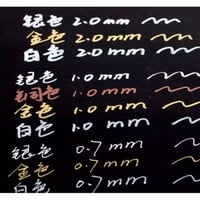 银色 2.0mm
金色 2.0mm
白色 2.0mm
银色 1.0mm
古铜色 1.0mm
金色 1.0mm
白色 1.0mm
银色 0.7mm
金色 0.7mm
白色 0.7mm